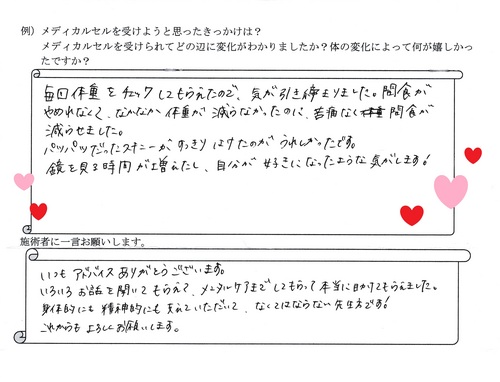 例）メディカルセルを受けようと思ったきっかけは？
メディカルセルを受けられてどの辺に変化がわかりましたか？体の変化によって何が嬉しかっ
たですか？
毎回体重をチェックしてもらえたので、気が引き締まりました。間食が
やめれなくて、なかなか体重が減らなかったのに、苦痛なく間食が
減らせました。
パッパツだったスキニーがすっきりはけたのがうれしかったです。
鏡を見る時間が増えたし、自分が好きになったような気がします！
施術者に一言お願いします。
いつもアドバイスありがとうございます。
いろいろお話を聞いてもらえて、メンタルケアまでしてもらって本当に助けてもらえました。
身体的にも精神的にも支えていただいて、なくてはならない先生方です！
これからもよろしくお願いします。